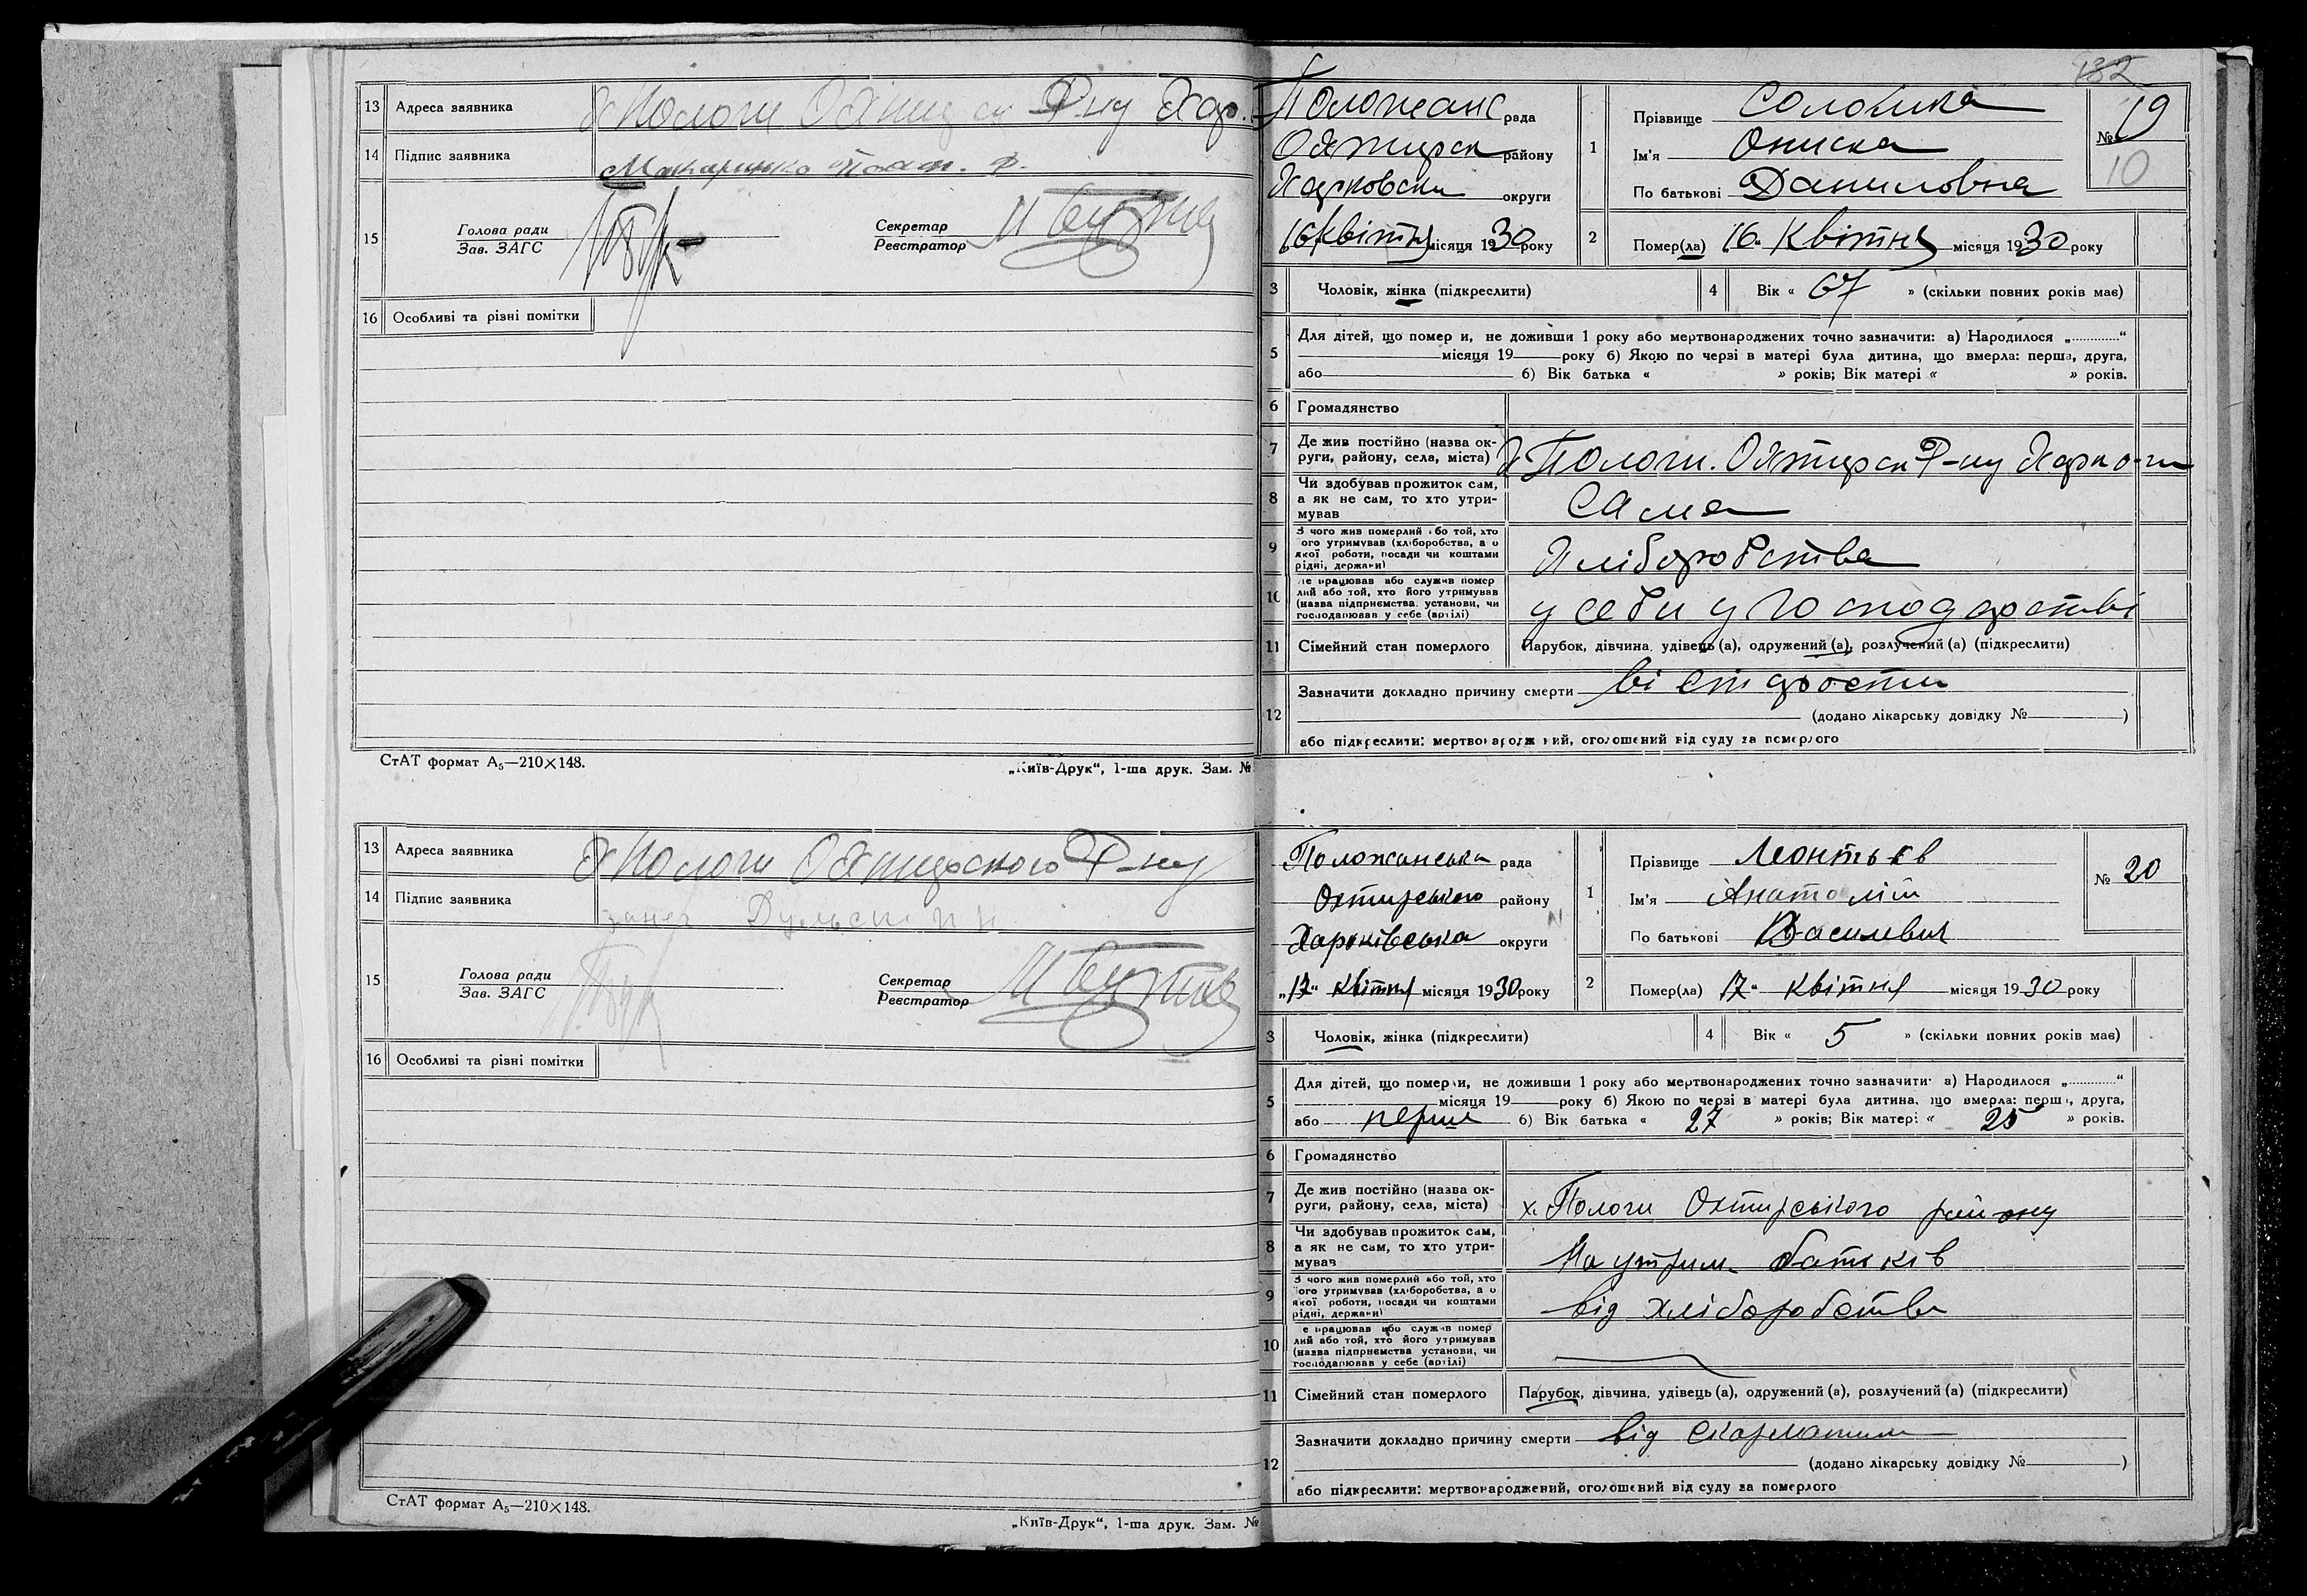 132
13 Адреса заявника х Пологи Охтирск Р-ну Хар.
14 Підпис заявника Макаринко
15 Голова ради Зав. ЗАГС Секретар Реєстратор
16 Особливі та різні помітки
СтАТ формат А₅—210×148.
„Київ-Друк“, 1-ша друк. Зам. №
Положанс рада
Охтирск району
Харковски округи
„16 Квітня місяця 1930 року
1 Прізвище Солошка
Ім'я Ониска
По батькові Даниловна
№ 19
10
2 Помер(ла) „16“ Квітня місяця 1930 року
3 Чоловік, жінка (підкреслити)
4 Вік « 67 » (скільки повних років має)
5 Для дітей, що помер и, не доживши 1 року або мертвонароджених точно зазначити: а) Народилося „............“
місяця 19 року б) Якою по черзі в матері була дитина, що вмерла: перша, друга,
або б) Вік батька « » років; Вік матері « » років.
6 Громадянство
7 Де жив постійно (назва ок-
руги, району, села, міста) х Пологи. Охтирск Р-ну Харк о-ги
8 Чи здобував прожиток сам,
а як не сам, то хто утри-
мував Сама
9 З чого жив померлий або той, хто
його утримував (хліборобства, а о
якої роботи, посади чи коштами
рідні, держави) Хліборобства
10 Де працював або служив помер
лий або той, хто його утримував
(назва підприємства, установи, чи
господарював у себе (артілі) у себи у господарстві
11 Сімейний стан померлого Парубок, дівчина, удівець (а), одружений (а), розлучений (а) (підкреслити)
12 Зазначити докладно причину смерти ві старости
(додано лікарську довідку № )
або підкреслити: мертвонароджений, оголошений від суду за померлого
13 Адреса заявника х Пологи Охтирского Р-ну
14 Підпис заявника
15 Голова ради Зав. ЗАГС Секретар Реєстратор
16 Особливі та різні помітки
СтАТ формат А₅—210×148.
„Київ-Друк“, 1-ша друк. Зам. №
Положанська рада
Охтирського району
Харківська округи
„17“ квітня місяця 1930 року
1 Прізвище Леонтьєв
Ім'я Анатолій
По батькові Василевич
№ 20
2 Помер(ла) 17“ квітня місяця 1930 року
3 Чоловік, жінка (підкреслити)
4 Вік « 5 » (скільки повних років має)
5 Для дітей, що померли, не доживши 1 року або мертвонароджених точно зазначити: а) Народилося „............“
місяця 19 року б) Якою по черзі в матері була дитина, що вмерла: перша, друга,
або перша б) Вік батька « 27 » років; Вік матері « 25 » років.
6 Громадянство
7 Де жив постійно (назва ок-
руги, району, села, міста) х. Пологи Охтирського району
8 Чи здобував прожиток сам,
а як не сам, то хто утри-
мував На утрим. батьків
9 З чого жив померлий або той, хто
його утримував (хліборобства, а о
якої роботи, посади чи коштами
рідні, держави) від хліборобства
10 Де працював або служив помер
лий або той, хто його утримував
(назва підприємства установи, чи
господарював у себе (артілі)
11 Сімейний стан померлого Парубок, дівчина, удівець (а), одружений (а), розлучений (а) (підкреслити)
12 Зазначити докладно причину смерти від скарлатини
(додано лікарську довідку № )
або підкреслити: мертвонароджений, оголошений від суду за померлого